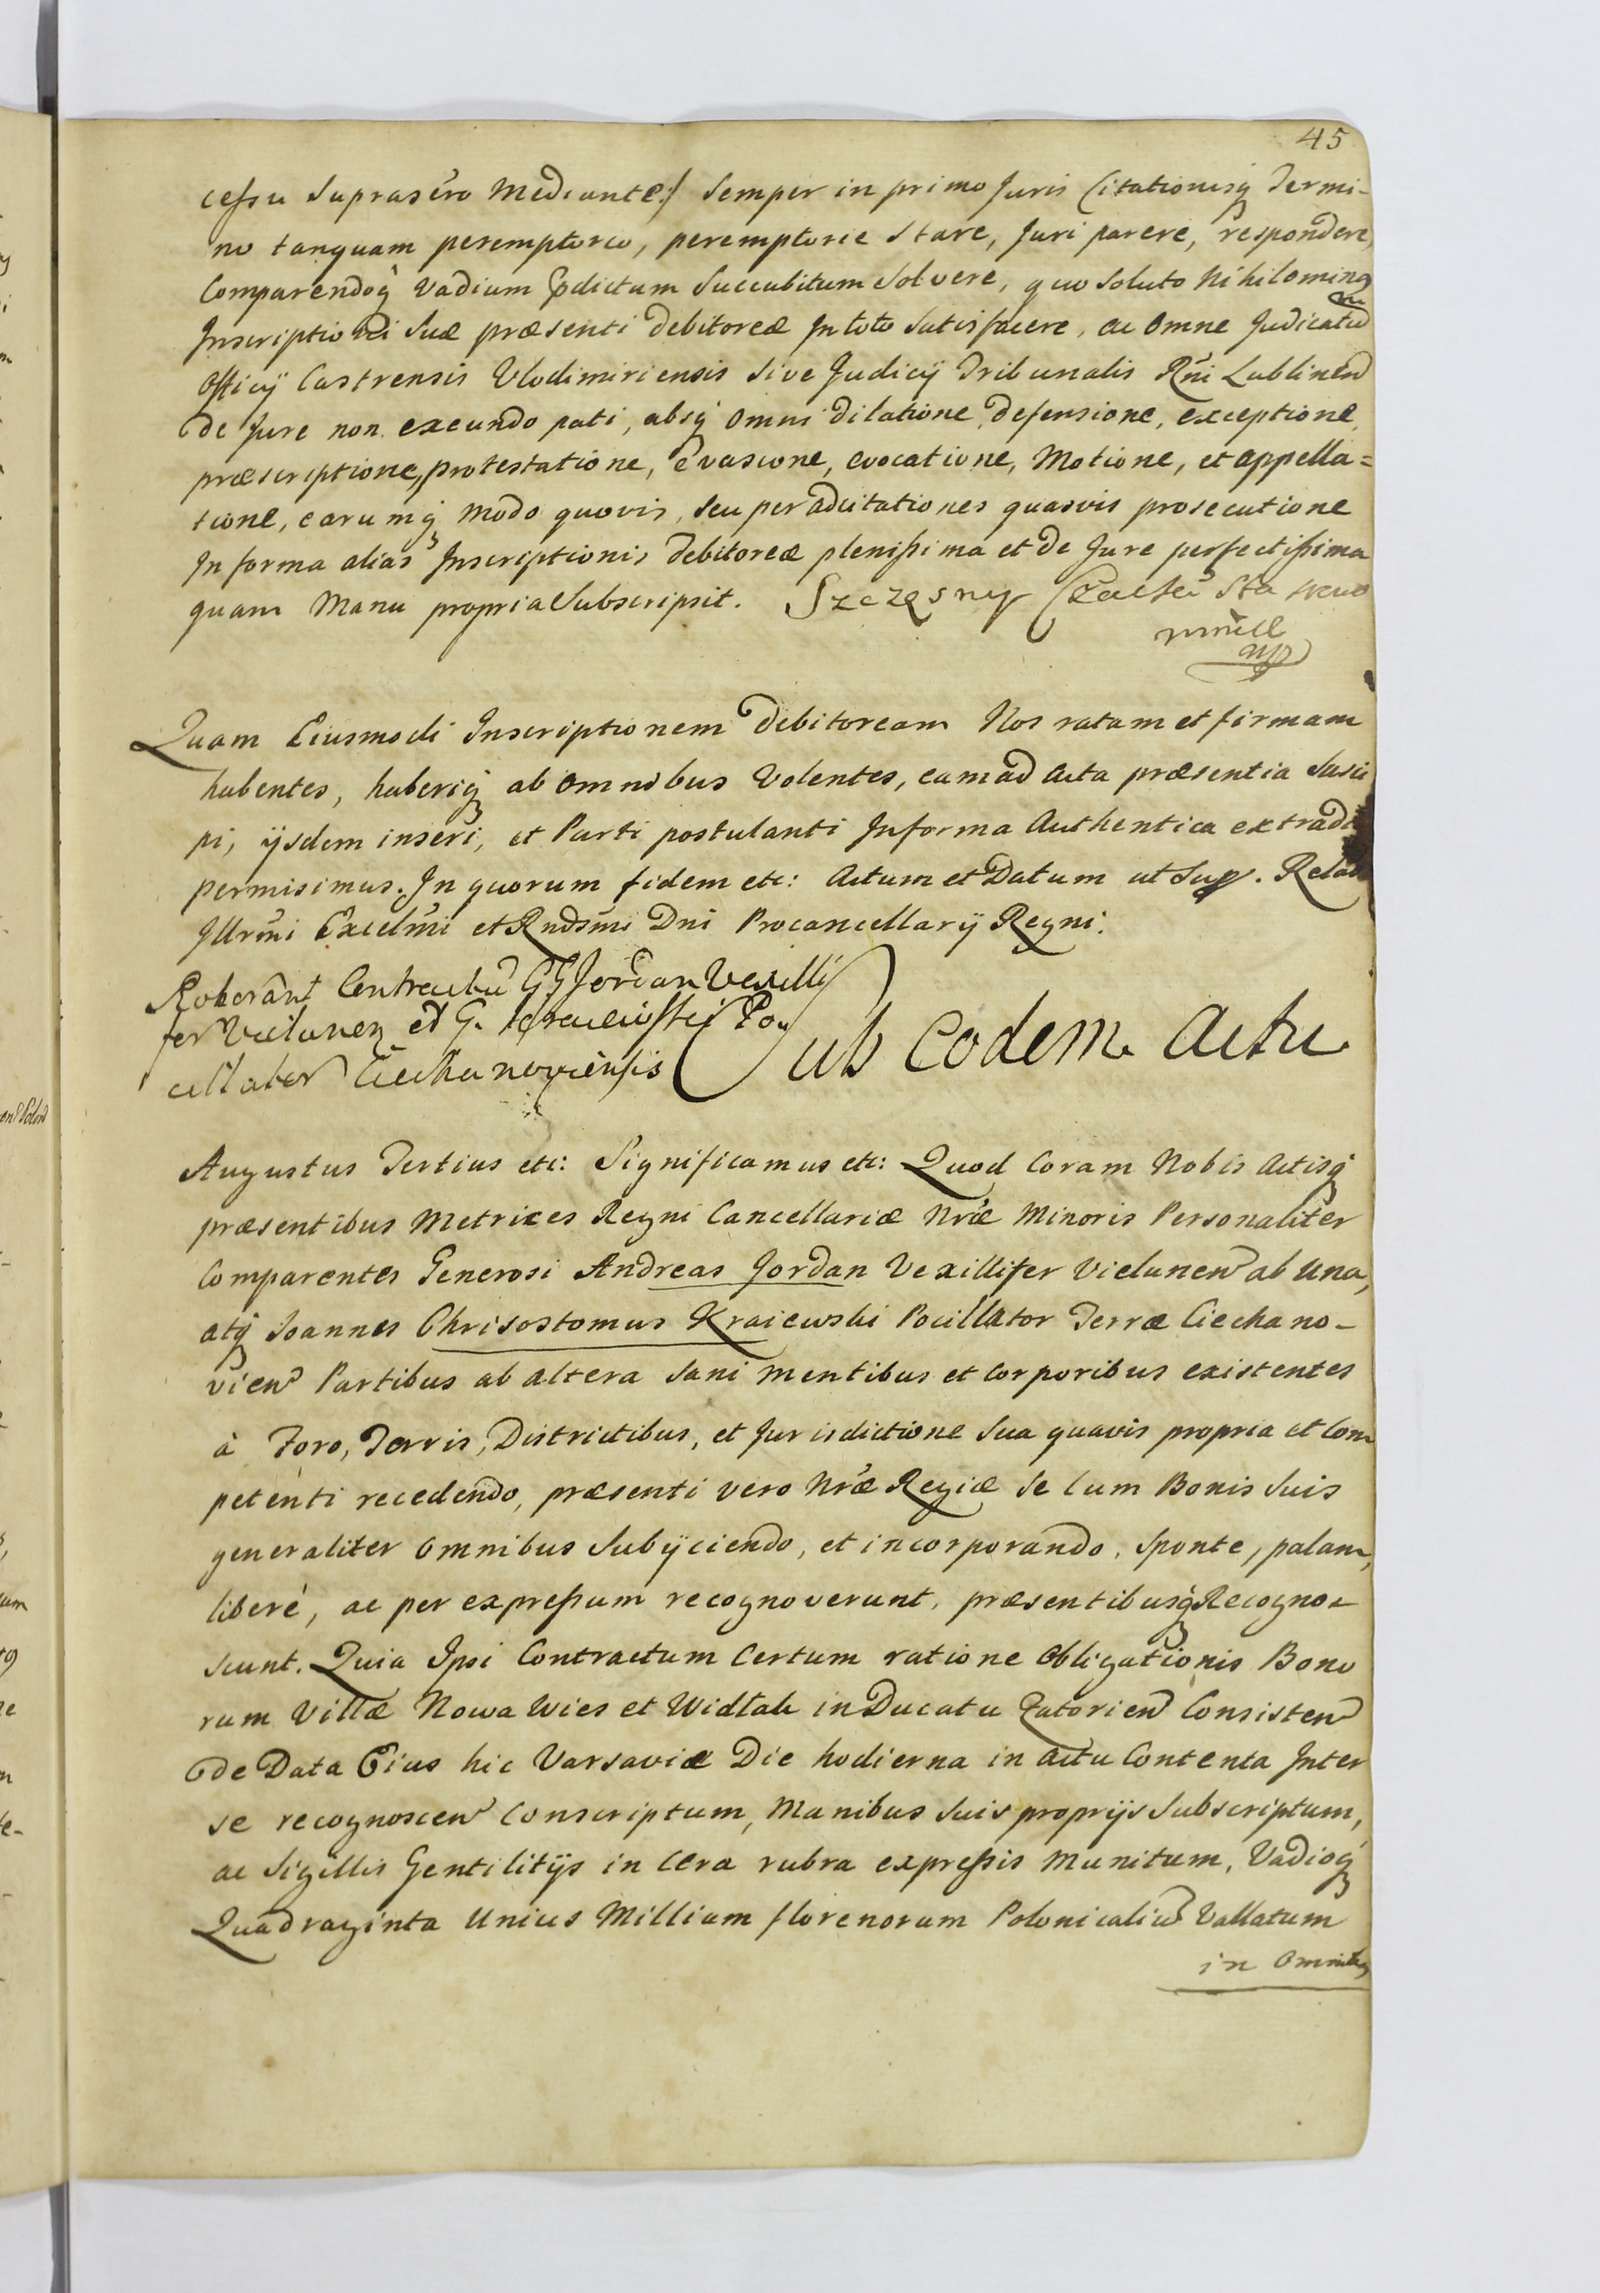 45
cessu Suprascro Mediante:/ Semper in primo Juris Citationisq Termi-
no tanquam peremptorio, peremptorie Stare, Juri parere, respondere,
Comparendoq Vadium pdictum Succubitum Solvere, quo Soluto Nihilominq
Inscriptioni Suæ præsenti debitoreæ In toto Satisfacere, ac Omne Judicatu
Officij Castrensis Vlodimiriensis Sive Judicij Tribunalis Rni Lublinen
de Jure non exeundo pati, absq Omni dilatione, defensione, exceptione,
præscriptione, protestatione, evasione, evocatione, Motione, et appella=
tione, earumq modo quovis, Seu per adcitationes quasvis prosecutione
In forma alias Inscriptionis debitoreæ plenissima et de Jure perfectissima
quam Manu propria Subscripsit. Szczęsny Czacki Sta
mp
Quam Eiusmodi Inscriptionem debitoream Nos ratam et firmam
habentes, haberiq ab omnibus Volentes, eam ad Acta præsentia Susci
pi, ijsdem inseri, et Parti postulanti In forma Authentica extradi
permisimus. In quorum fidem etc: Actum et Datum ut Sup. Relat
Illrmi Excelmi et Rndsmi Dni Procancellarij Regni.
Roborant Contractu GG Jordan Vexilli
fer Vielunen et G. Kraiewski Po
cillator Ciechanoviensis
Sub eodem Actu
Augustus Tertius etc: Significamus etc: Quod Coram Nobis Actisq
præsentibus Metrices Regni Cancellariæ Nræ Minoris Personaliter
Comparentes Generosi Andreas Jordan Vexillifer Vielunen ab Una,
atq Joannes Chrisostomus Kraiewski Pocillator Terræ Ciechano-
vien Partibus ab altera Sani mentibus et Corporibus existentes
à Foro, Terris, Districtibus, et Jurisdictione Sua quavis propria et Com
petenti recedendo, præsenti vero Nræ Regiæ Se Cum Bonis Suis
generaliter Omnibus Subijciendo, et incorporando, Sponte, palam,
liberé, ac per expressum recognoverunt, præsentibusq Recogno-
scunt. Quia Ipsi Contractum Certum ratione Obligationis Bono
rum Villæ Nowa Wies et Widłak in Ducatu Zatorien Consisten
de Data Eius hic Varsaviæ Die hodierna in Actu Contenta Inter
se recognoscen Conscriptum, Manibus Suis proprijs Subscriptum,
ac Sigillis Gentilitijs in Cera rubra expressis Munitum, Vadioq
Quadraginta Unius Millium florenorum Polonicaliu Vallatum
in Omnibq